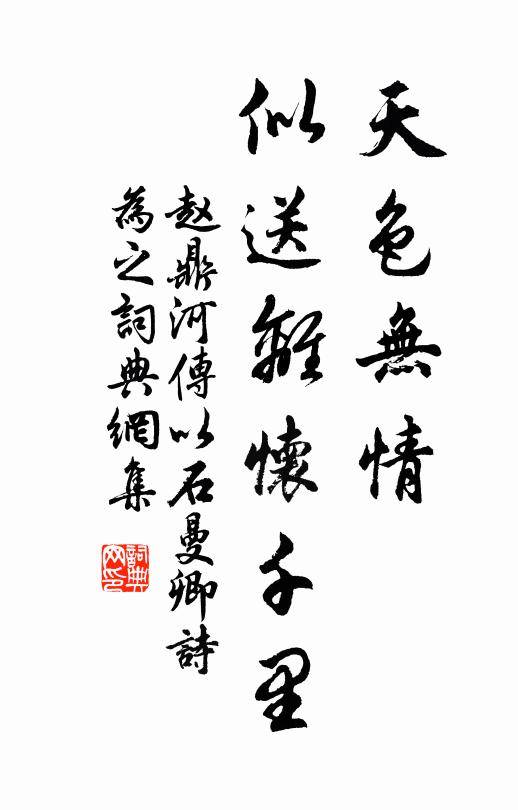 天色無情
似送離懷千里
赵鼎河傳以石曼卿詩
為之詞典網集
詞典
网印